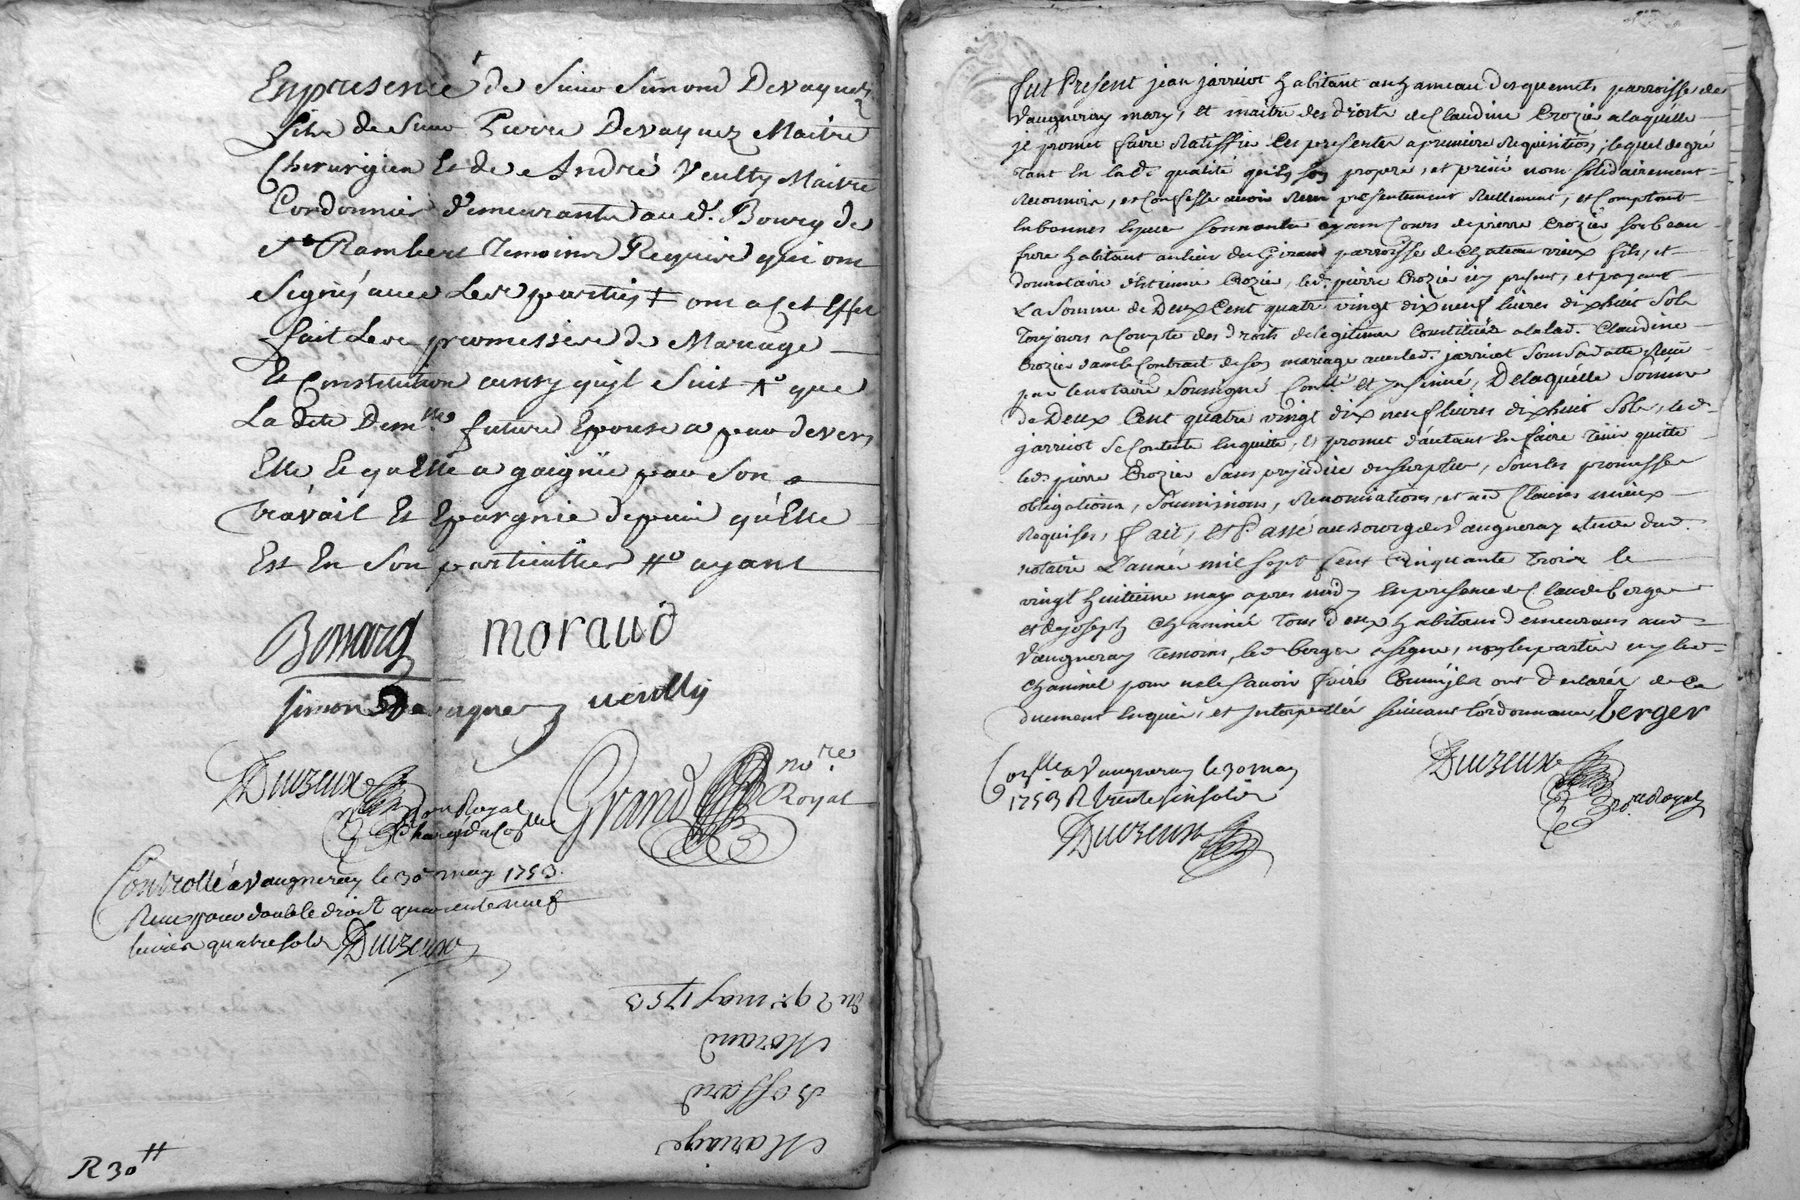 En presence de Sieur Simond Devaquez
fils de Sieur Pierre Devaquez Maitre
Chirurgien et de André Veultÿ Maitre
Cordonnier demeurants au d. Bourg de
St Rambert temoins Requis qui ont
Signé avec les parties ‡ ont a cet effet
fait les promesses de Mariage
et Constitution ainsy qu'il suit que
La dite Dem.lle future Epouse a peur devers
Elle et qu'Elle a gaignié par son
travail et Epargnie depuis qu'Elle
Est En son particullier ayant
Bonard moraud
simon Devaquez veultÿ
Duizeux Grand no.re Royal
no.re Royal
Controllé a Vaugneray le 30 may 1753
Receu pour double droit quarente neuf
livres quatre sols Duizeux
Du 29e may 1753
Moraud
Boffard
Mariage
R 30 ⁺⁺
fut Present jean jarricot habitant au hameau des quemets parroisse de
Vaugneray mary, et maitre des droits de Claudine Crozier a laquelle
je promet faire Ratiffier Ces presentes a premiere Requisition, lequel de gré
tant En la d. qualité qu'En son propre, et privé nom solidairement
Reconnoit, et Confesse avoir Receu presentement Reellement, et Comptant
En bonnes Especes sonnantes ayant Cours de pierre Crozier son beau
frere habitant au lieu du Giraud parroisse de Chateau vieux fils, et
donnataire d'Estienne Crozier, led. pierre Crozier icy present, et payant
La Somme de Deux Cent quatre vingt dix neuf livres dix huit Sols
toujours a Compte des droits de legitime Constitués a la d. Claudine
Crozier dans le Contrait de son mariage avec led. jarricot sous sa datte Receu
par le notaire soussigné Controllé Et Insinué, De laquelle Somme
de Deux Cent quatre vingt dix neuf livres dix huit Sols, led.
jarricot se Contente En quitte, Et promet d'autant En faire tenir quitte
led. pierre Crozier sans prejudice du surplus, sous les promesses
obligations, soumissions, Renonciations, et mes Clauses mieux
Requises, fait, et Passé au bourg de Vaugneray Etude dud.
notaire L'année mil sept Cent Cinquante trois le
vingt huitieme may apres midy En presence de Claude berger
et de joseph Chaminel tous deux habitans demeurans aud.
Vaugneray temoins, led. berger a signé, non les parties ny led.
Chaminel pour ne le savoir faire Comm'ils ont declaré de Ce
duement Enquis, et Interpellés suivant l'ordonnance, berger
Con.llé a Vaugneray le 30 may
1753 R trente Cinq sols
Duizeux
Duizeux no.re Royal